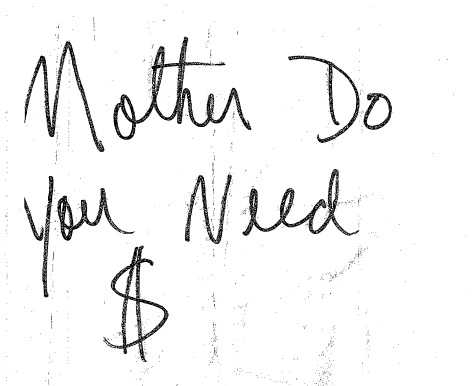 Mother Do
you Need
$